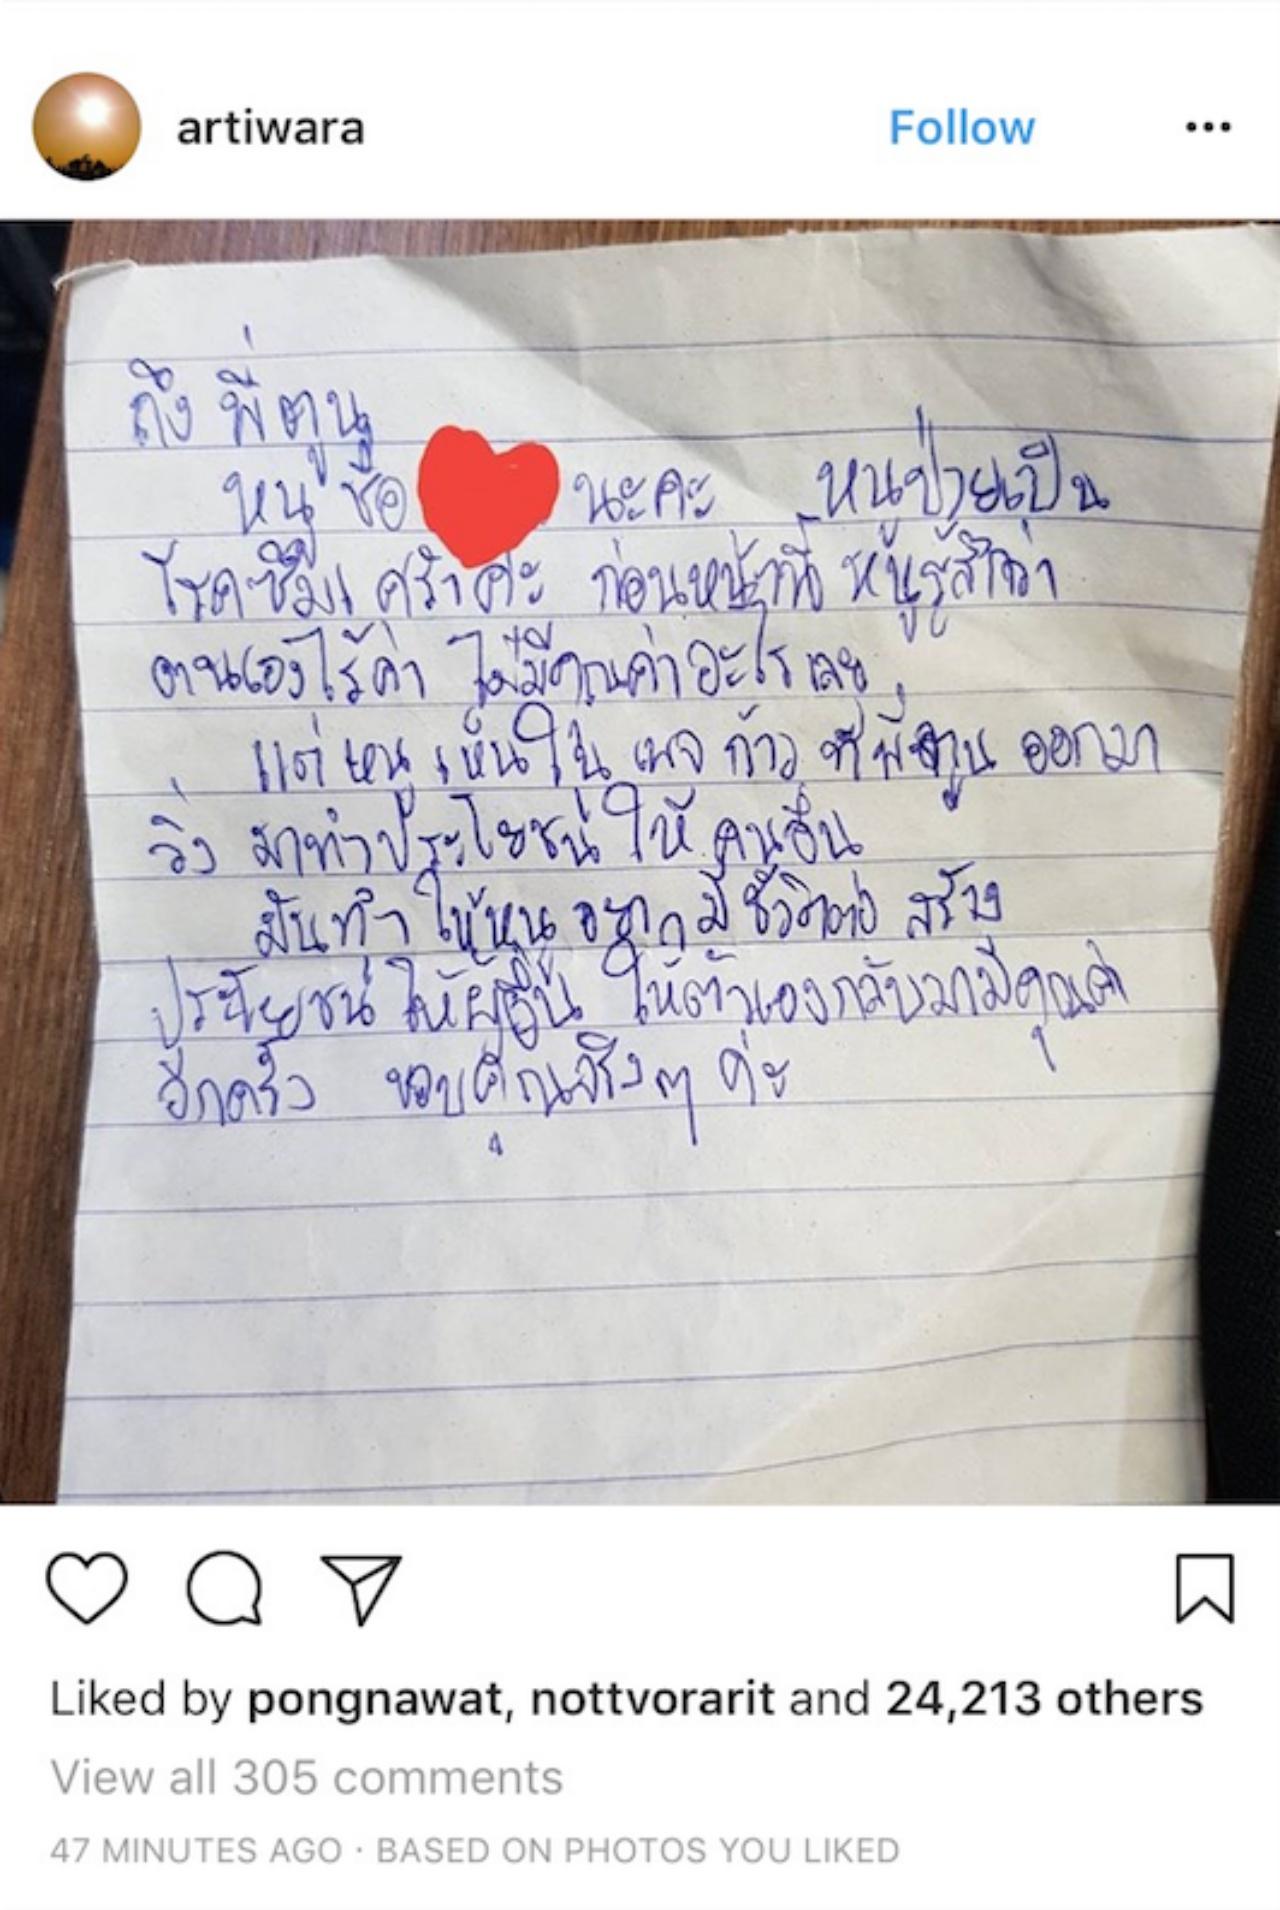 artiwara
Follow
ถึง พี่ตูน
หนู ชื่อ นะคะ หนูป่วยเป็น
โรคซึมเศร้าค่ะ ก่อนหน้านี้ หนูรู้สึกว่า
ตนเองไร้ค่า ไม่มีคุณค่าอะไรเลย
แต่ หนู เห็นใน เพจ ก้าว ที่พี่ตูน ออกมา
วิ่ง มาทำประโยชน์ ให้ คนอื่น
มันทำ ให้หนู อยาก มี ชีวิต สร้าง
ประโยชน์ ให้ผู้อื่น ให้ตัวเองกลับมามีคุณค่า
อีกครั้ง ขอบคุณจริงๆ ค่ะ
Liked by pongnawat, nottvorarit and 24,213 others
View all 305 comments
47 MINUTES AGO · BASED ON PHOTOS YOU LIKED